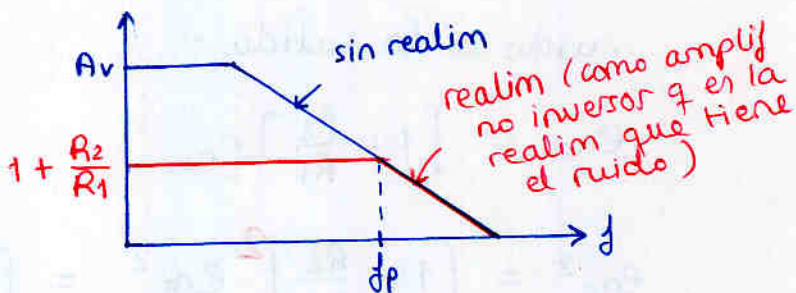 Av
sin realim
realim (como amplif
no inversor q es la
realim que tiene
el ruido)
1 + R2/R1
f
fp